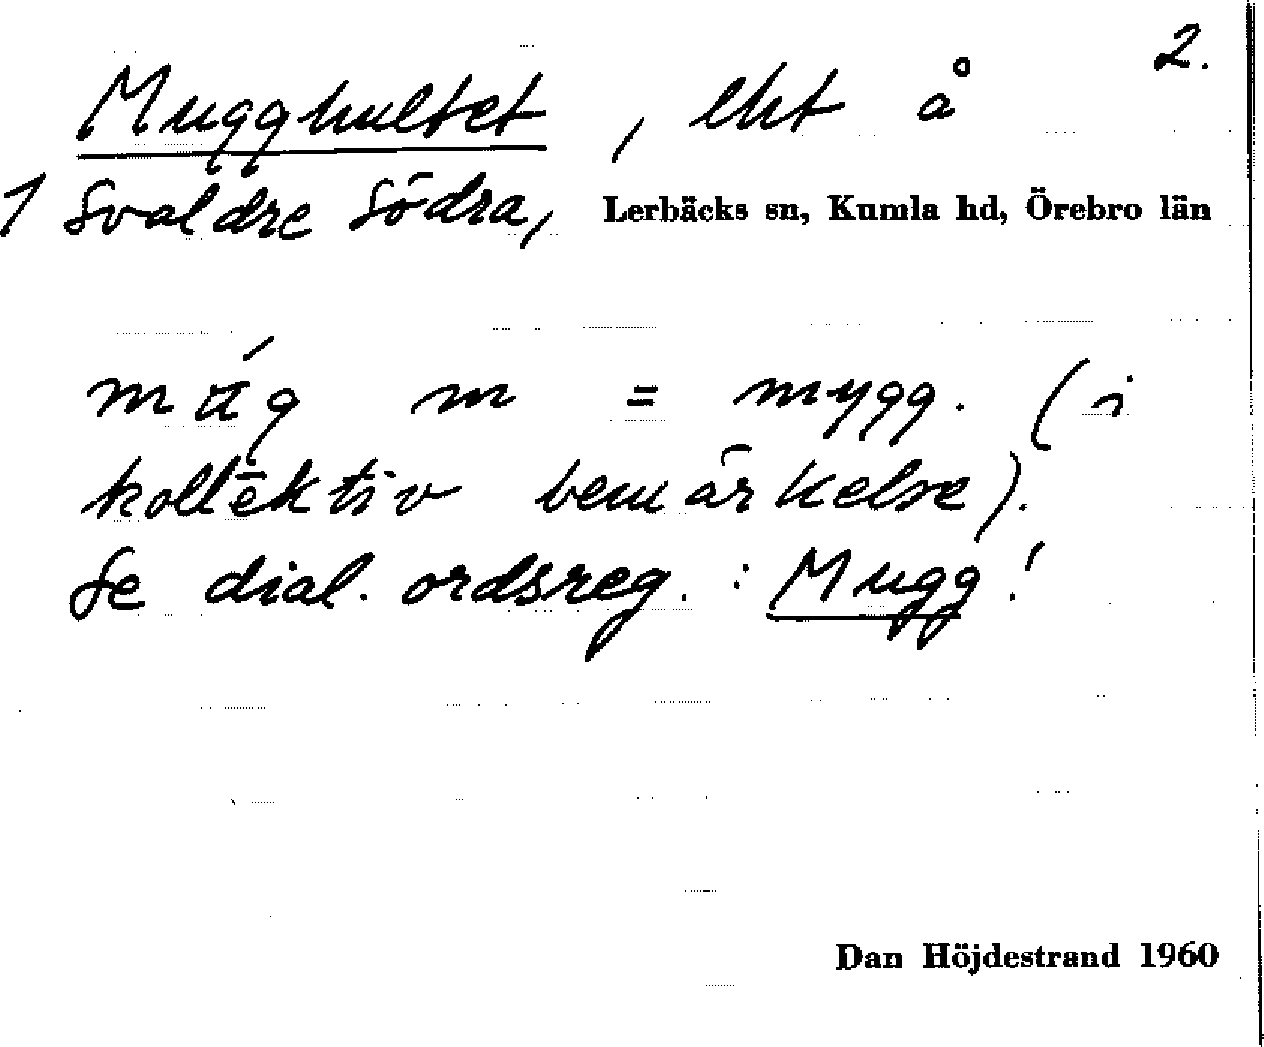 2.
Mugghultet, lht å
1 Svaldre Södra, Lerbäcks sn, Kumla hd, Örebro län
m m = mygg. (i
kollektiv bemärkelse).
Se dial. ordsreg.: Mugg!
Dan Höjdestrand 1960